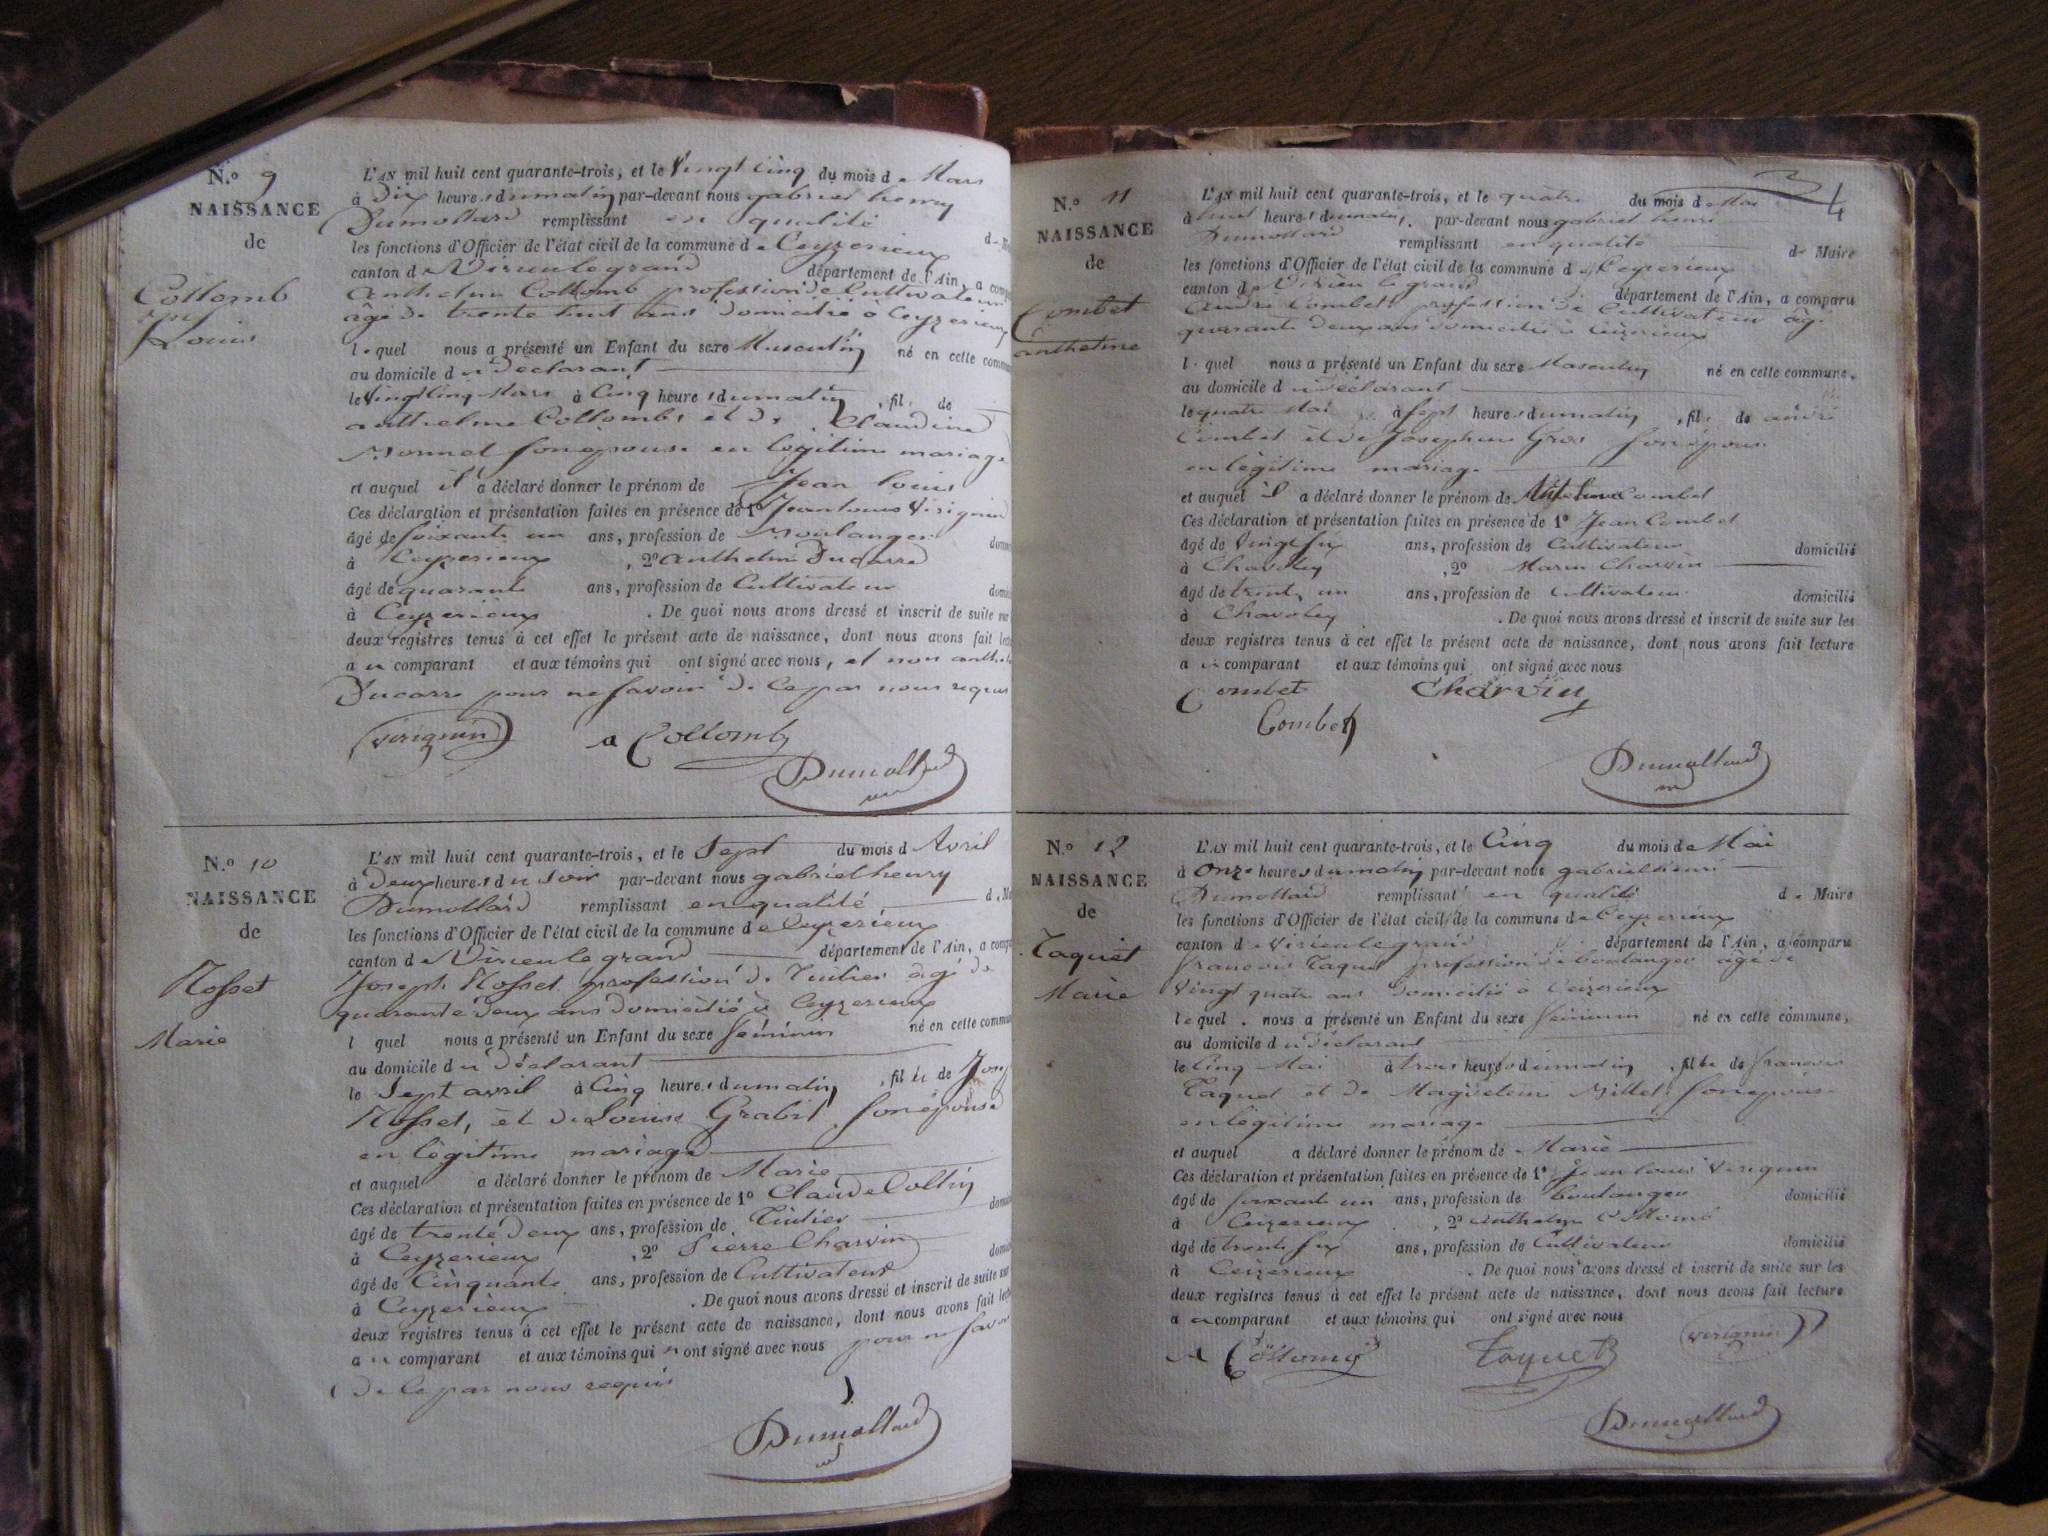 N.º 9
NAISSANCE
de
Collomb
Louis
L'AN mil huit cent quarante-trois, et le Vingt Cinq du mois de Mars
à Dix heures du matin par-devant nous gabriel henry
Dumollard remplissant en qualité
les fonctions d'Officier de l'état civil de la commune de Ceyzerieux
canton de Virieu le grand département de l'Ain, a
Anthelme Collomb profession de Cultivateur
âgé de trente huit ans domicilié à Ceyzerieux
lequel nous a présenté un Enfant du sexe Masculin né en cette
au domicile du Déclarant
le Vingt Cinq Mars à Cinq heures du matin, fils de
anthelme Collomb et de Claudine
Monnet son épouse en légitime mariage
et auquel il a déclaré donner le prénom de Jean Louis
Ces déclaration et présentation faites en présence de 1º Jean Louis Virignin
âgé de soixante un ans, profession de Boulanger
à Ceyzerieux, 2º Anthelme Ducarre
âgé de quarante ans, profession de Cultivateur
à Ceyzerieux. De quoi nous avons dressé et inscrit de suite
deux registres tenus à cet effet le présent acte de naissance, dont nous avons fait
au comparant et aux témoins qui ont signé avec nous, et non
Ducarre pour ne savoir de ce par nous requis
Virignin
a Collomb
Dumollard
N.º 10
NAISSANCE
de
Rosset
Marie
L'AN mil huit cent quarante-trois, et le Sept du mois d Avril
à Deux heures du soir par-devant nous gabriel henry
Dumollard remplissant en qualité
les fonctions d'Officier de l'état civil de la commune de Ceyzerieux
canton de Virieu le grand département de l'Ain, a
Joseph Rosset profession de Tuilier âgé de
quarante deux ans domicilié à Ceyzerieux
l quel nous a présenté un Enfant du sexe féminin né en cette
au domicile du Déclarant
le Sept avril à Cinq heures du matin, fille de
Rosset, et de Louise Grabit son épouse
en légitime mariage
et auquel a déclaré donner le prénom de Marie
Ces déclaration et présentation faites en présence de 1º Claude Collin
âgé de trente Deux ans, profession de Tuilier
à Ceyzerieux, 2º Pierre Charvin
âgé de Cinquante ans, profession de Cultivateur
à Ceyzerieux. De quoi nous avons dressé et inscrit de suite sur
deux registres tenus à cet effet le présent acte de naissance, dont nous avons fait
au comparant et aux témoins qui n ont signé avec nous pour ne
de ce par nous requis
Dumollard
4
N.º 11
NAISSANCE
de
Combet
anthelme
L'AN mil huit cent quarante-trois, et le quatre du mois de Mai
à huit heures du matin, par-devant nous gabriel henri
Dumollard remplissant en qualité de Maire
les fonctions d'Officier de l'état civil de la commune de Ceyzerieux
canton de Virieu le grand département de l'Ain, a comparu
André Combet profession de Cultivateur âgé
quarante deux ans domicilié à Ceyzerieux
lequel nous a présenté un Enfant du sexe Masculin né en cette commune,
au domicile du Déclarant
le quatre Mai à sept heures du matin, fils de andré
Combet et de Josephine Gros son épouse
en légitime mariage
et auquel il a déclaré donner le prénom de Anthelme Combet
Ces déclaration et présentation faites en présence de 1º Jean Combet
âgé de Vingt six ans, profession de Cultivateur domicilié
à Chavoley, 2º Marin Charvin
âgé de trente un ans, profession de Cultivateur domicilié
à Chavoley. De quoi nous avons dressé et inscrit de suite sur les
deux registres tenus à cet effet le présent acte de naissance, dont nous avons fait lecture
au comparant et aux témoins qui ont signé avec nous
Combet Charvin
Combet
Dumollard
N.º 12
NAISSANCE
de
Taquet
Marie
L'AN mil huit cent quarante-trois, et le Cinq du mois de Mai
à Onze heures du matin par-devant nous gabriel henri
Dumollard remplissant en qualité de Maire
les fonctions d'Officier de l'état civil de la commune de Ceyzerieux
canton de Virieu le grand département de l'Ain, a comparu
francois Taquet profession de boulanger âgé de
Vingt quatre ans Domicilié à Ceizerieux
lequel nous a présenté un Enfant du sexe féminin né en cette commune,
au domicile du Déclarant
le Cinq Mai à trois heures du matin, fille de francois
Taquet et de Magdeleine Millet son épouse
en légitime mariage
et auquel a déclaré donner le prénom de Marie
Ces déclaration et présentation faites en présence de 1º Jean Louis Virignin
âgé de soixante un ans, profession de boulanger domicilié
à Ceizerieux, 2º Anthelme Collomb
âgé de trente six ans, profession de Cultivateur domicilié
à Ceizerieux. De quoi nous avons dressé et inscrit de suite sur les
deux registres tenus à cet effet le présent acte de naissance, dont nous avons fait lecture
au comparant et aux témoins qui ont signé avec nous
Virignin
A Collomb Taquet
Dumollard